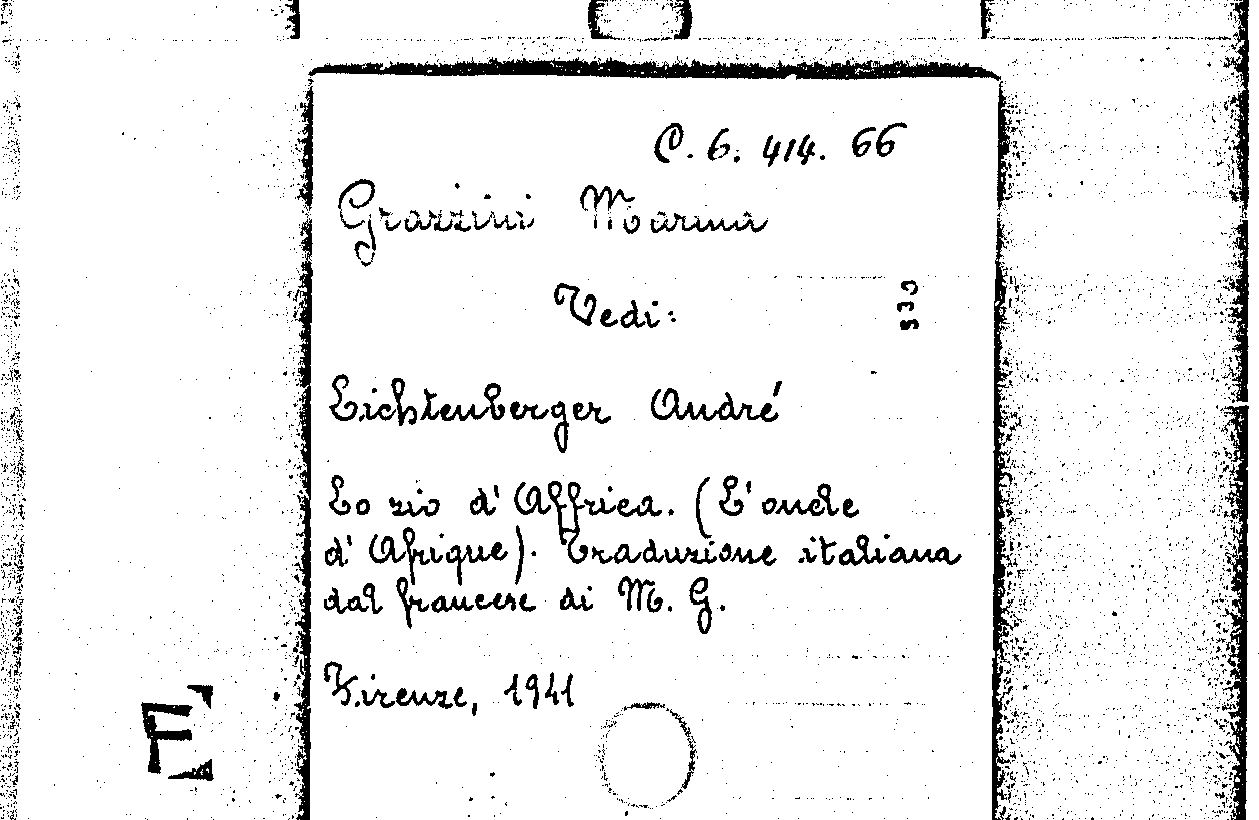 C. 6. 414. 66
Grazzini Marina
Vedi:
533
Lichtenberger André
Lo zio d'Affrica. (L'oncle
d'Afrique). Traduzione italiana
dal francese di M. G.
Firenze, 1941
F